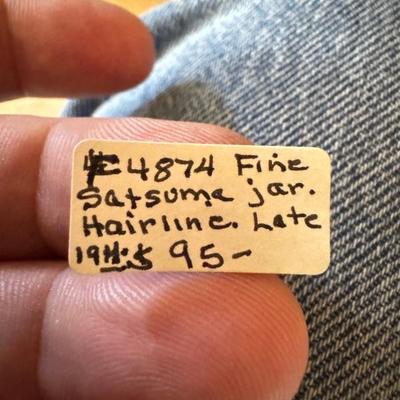 #4874 Fine
Satsuma jar.
Hairline. Late
19th. $ 95-